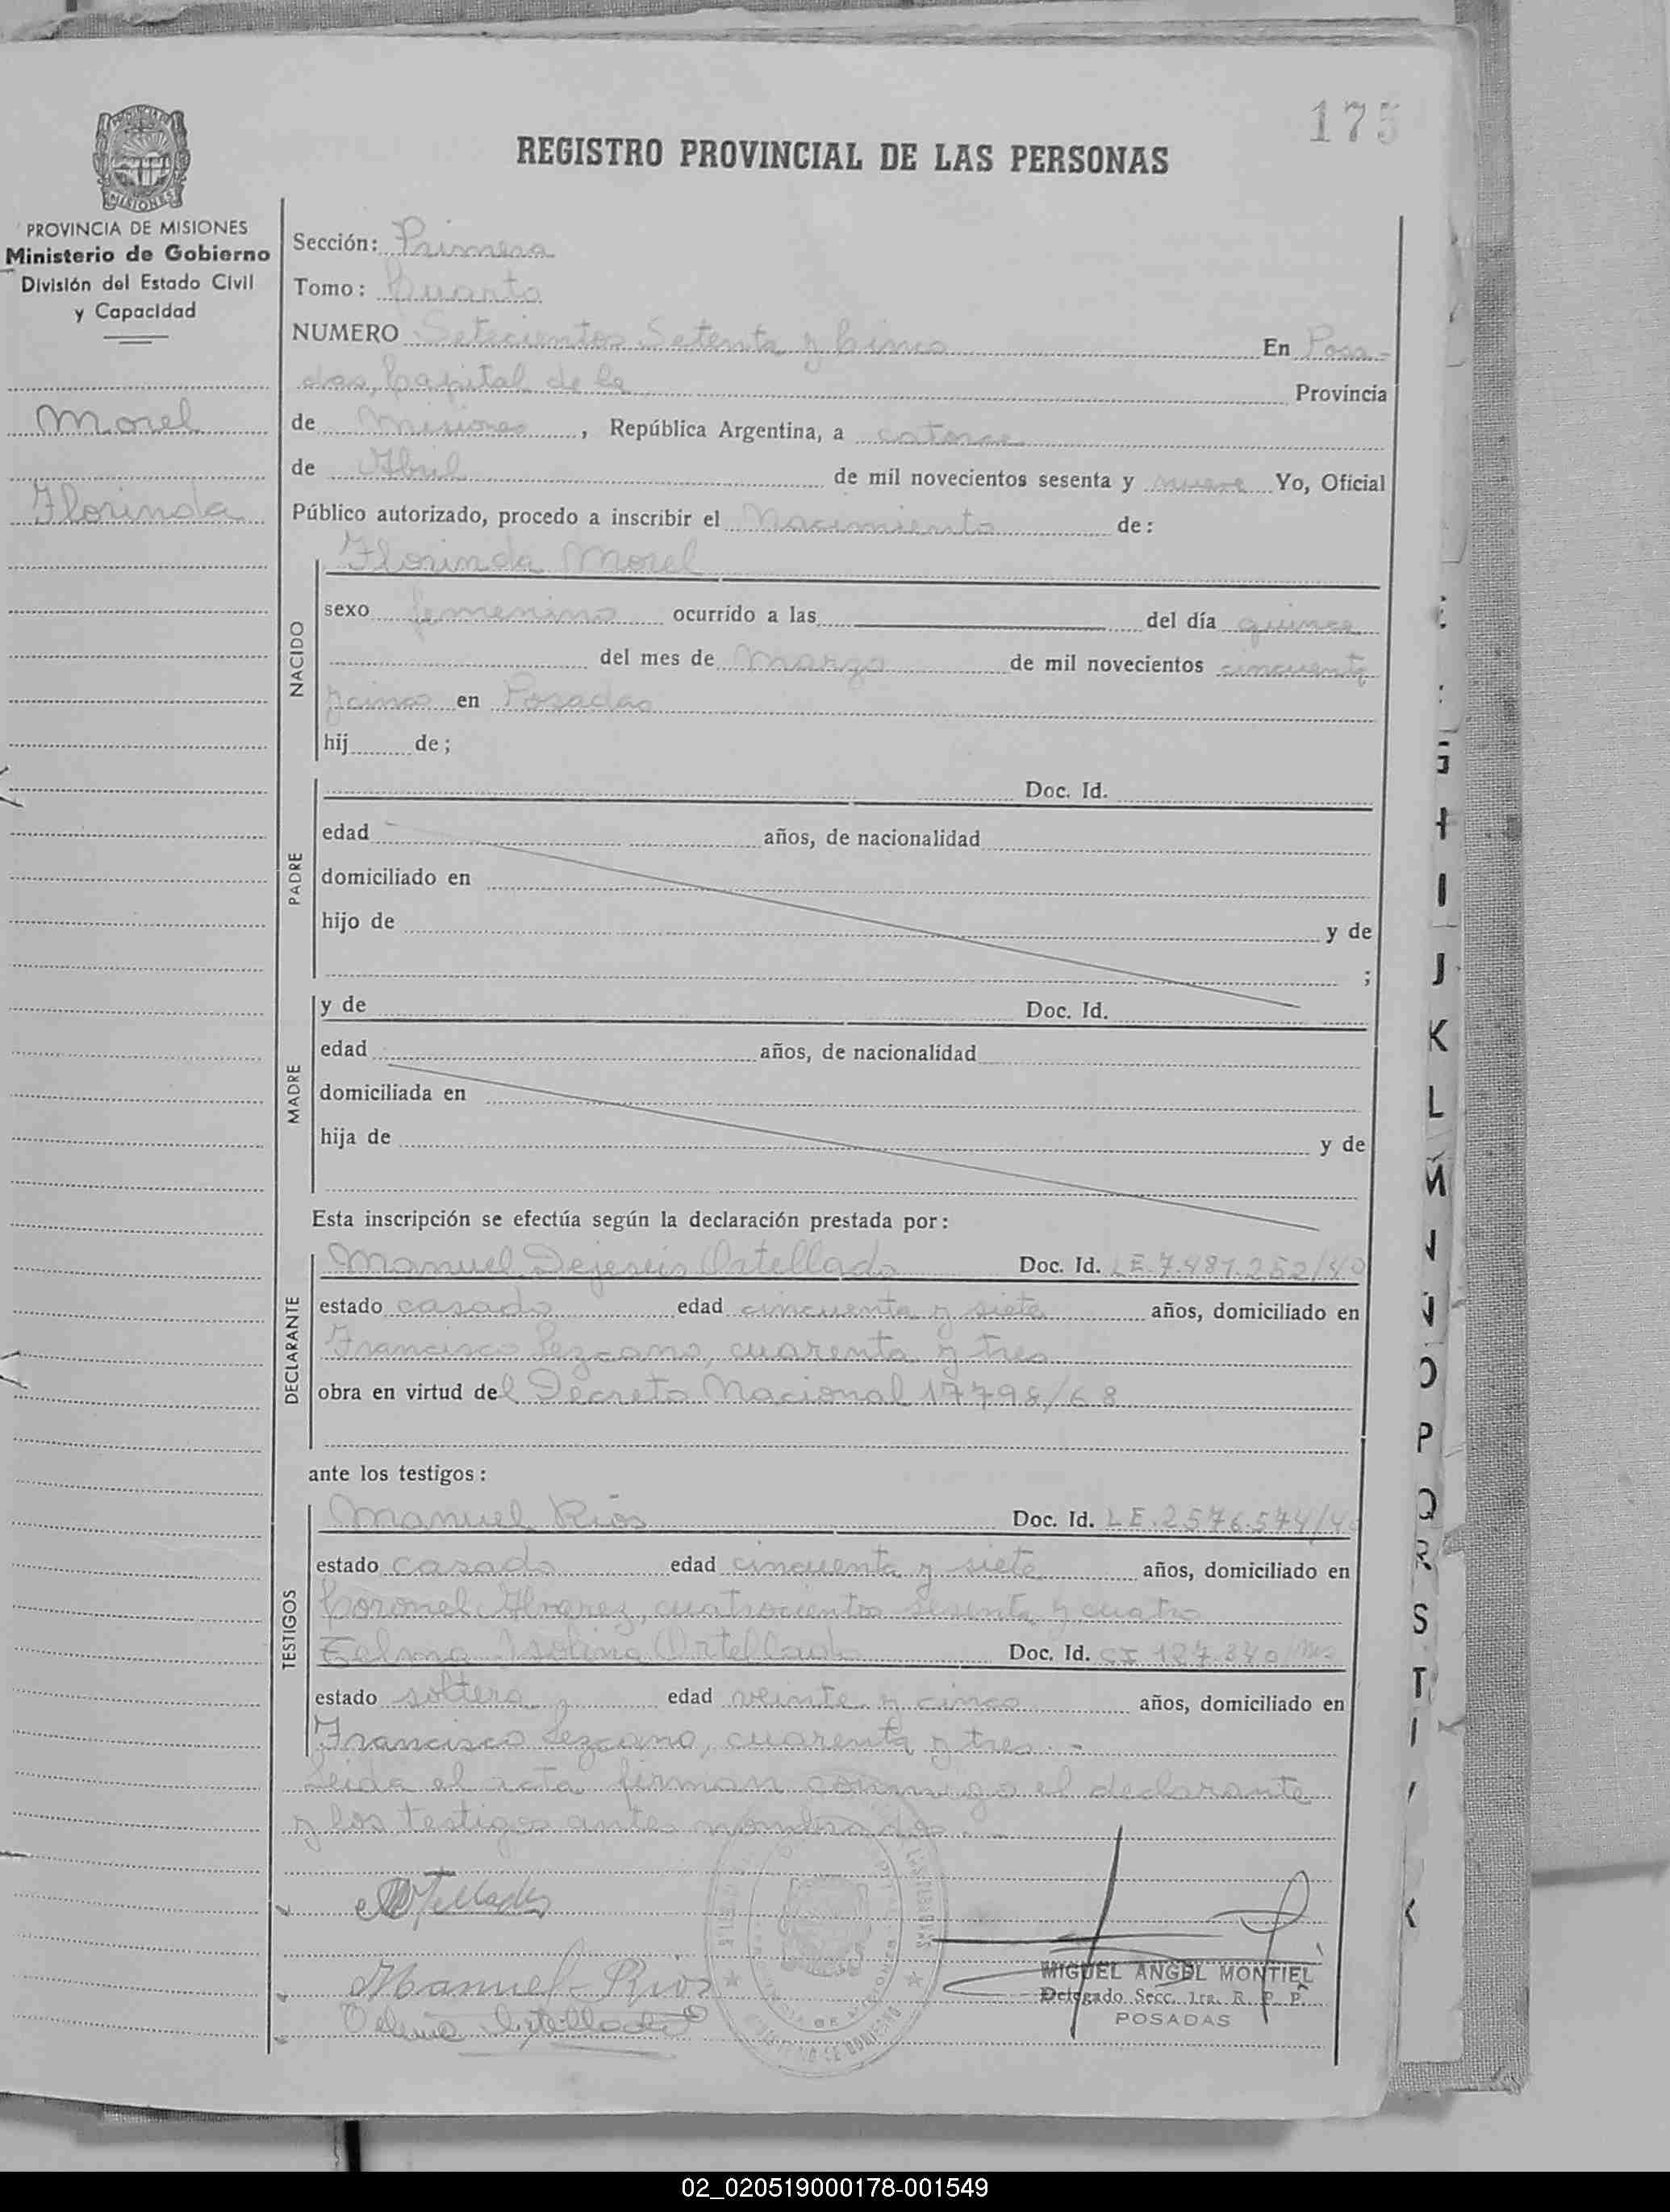 175
REGISTRO PROVINCIAL DE LAS PERSONAS
PROVINCIA DE MISIONES
Ministerio de Gobierno
División del Estado Civil
y Capacidad
Morel
Florinda
Sección: Primera
Tomo: Cuarto
NUMERO Setecientos Setenta y Cinco En Posa-
das, Capital de la Provincia
de Misiones, República Argentina, a catorce
de Abril de mil novecientos sesenta y nueve Yo, Oficial
Público autorizado, procedo a inscribir el Nacimiento de:
NACIDO
Florinda Morel
sexo femenino ocurrido a las del día quince
del mes de Marzo de mil novecientos cincuenta
y cinco en Posadas
hij de;
PADRE
Doc. Id.
edad años, de nacionalidad
domiciliado en
hijo de y de
;
MADRE
y de Doc. Id.
edad años, de nacionalidad
domiciliada en
hija de y de
Esta inscripción se efectúa según la declaración prestada por:
DECLARANTE
Manuel Dejesús Ortellado Doc. Id. LE.7.487.252/40
estado casado edad cincuenta y siete años, domiciliado en
Francisco Lezcano, cuarenta y tres
obra en virtud del Decreto Nacional 17798/68
ante los testigos:
TESTIGOS
Manuel Ríos Doc. Id. LE.2576.574/40
estado casado edad cincuenta y siete años, domiciliado en
Coronel Alvarez, cuatrocientos sesenta y cuatro
Telma Isolina Ortellado Doc. Id. CI 127.340
estado soltera edad veinte y cinco años, domiciliado en
Francisco Lezcano, cuarenta y tres.-
Leída el acta firman conmigo el declarante
y los testigos antes nombrados.-
Ortellado
Manuel Ríos
Ortellado
MIGUEL ANGEL MONTIEL
Delegado Secc. 1ra. R. P. P.
POSADAS
I
J
K
L
M
O
P
Q
R
S
T
02_020519000178-001549